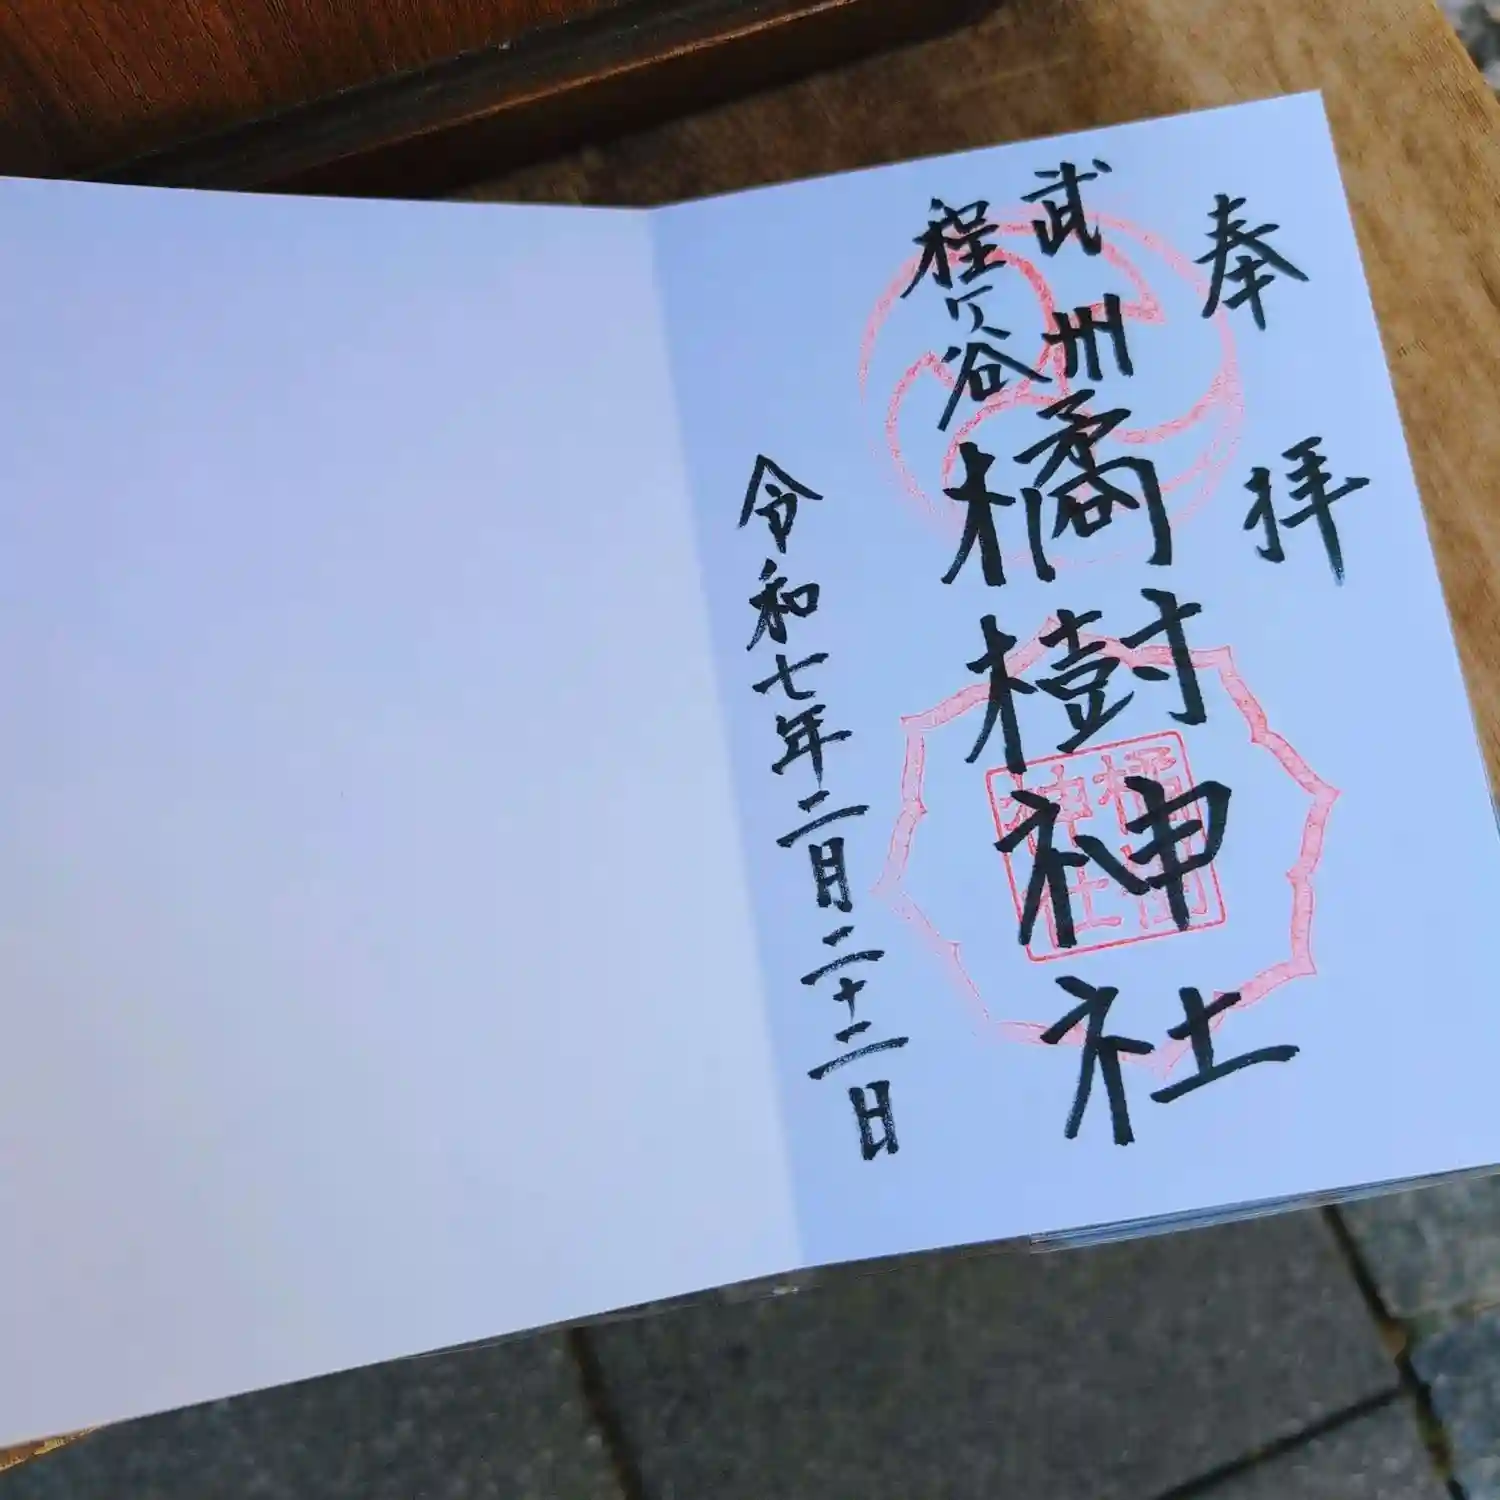 奉拝
武州
程ヶ谷
橘樹神社
橘樹
神社
令和七年二月二十二日